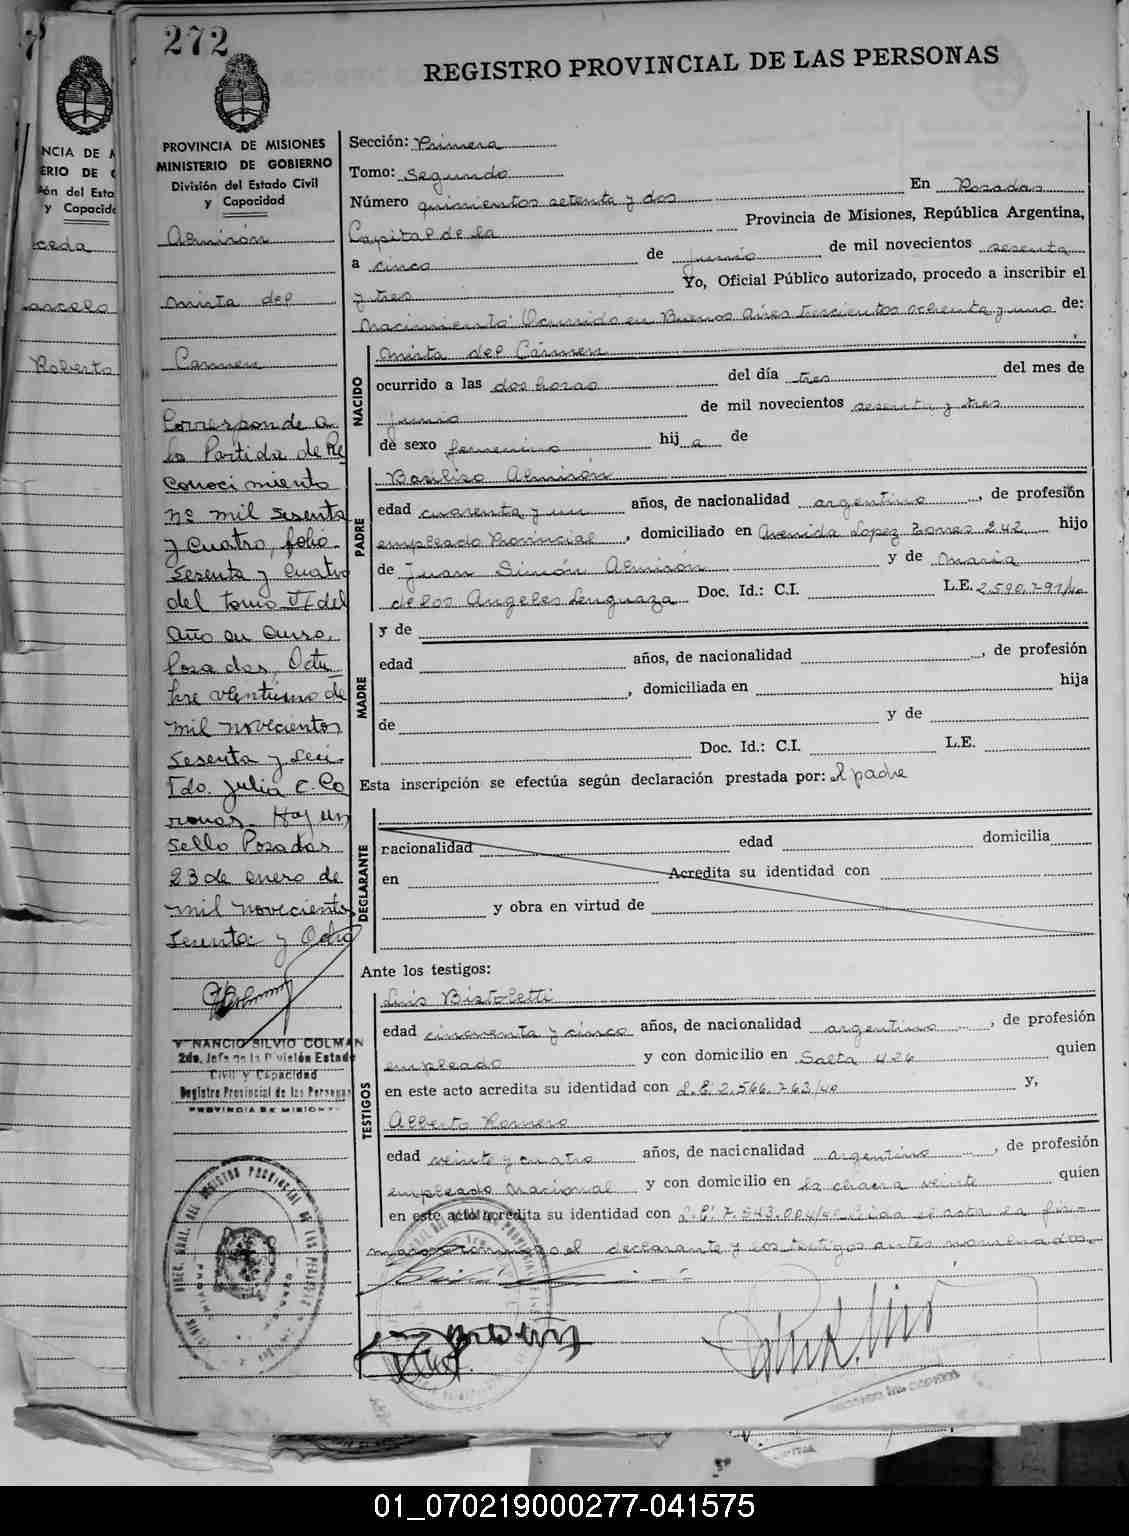 272
REGISTRO PROVINCIAL DE LAS PERSONAS
PROVINCIA DE MISIONES
MINISTERIO DE GOBIERNO
División del Estado Civil
y Capacidad
Almirón
Mirta del
Carmen
Corresponde a
la Partida de Re
conocimiento
nº mil sesenta
y cuatro, folio
sesenta y cuatro
del tomo VI del
año en curso.
Posadas, Octu
bre veintiuno de
mil novecientos
sesenta y seis.
Fdo. Julia C. Co
ronas. Hay un
sello Posadas
23 de enero de
mil novecientos
sesenta y Ocho
VENANCIO SILVIO COLMAN
2do. Jefe de la División Estado
Civil y Capacidad
Registro Provincial de las Personas
PROVINCIA DE MISIONES
Sección: Primera
Tomo: Segundo
Número quinientos setenta y dos En Posadas
Capital de la Provincia de Misiones, República Argentina,
a cinco de junio de mil novecientos sesenta
y tres Yo, Oficial Público autorizado, procedo a inscribir el
Nacimiento: Ocurrido en Buenos Aires trescientos ochenta y uno de:
NACIDO
Mirta del Cármen
ocurrido a las dos horas del día tres del mes de
junio de mil novecientos sesenta y tres
de sexo femenino hija de
PADRE
Basiliso Almirón
edad cuarenta y un años, de nacionalidad argentino, de profesión
empleado Provincial, domiciliado en Avenida Lopez Torres 242 hijo
de Juan Simón Almirón y de Maria
de los Angeles Lenguaza Doc. Id.: C.I. L.E. 2.590.791/40
MADRE
y de
edad años, de nacionalidad , de profesión
, domiciliada en hija
de y de
Doc. Id.: C.I. L.E.
Esta inscripción se efectúa según declaración prestada por: el padre
DECLARANTE
nacionalidad edad domicilia
en Acredita su identidad con
y obra en virtud de
Ante los testigos:
TESTIGOS
Luis Bistoletti
edad cincuenta y cinco años, de nacionalidad argentino, de profesión
empleado y con domicilio en Salta 426 quien
en este acto acredita su identidad con L.E. 2.566.763/40 y,
Alberto Romero
edad veinte y cuatro años, de nacionalidad argentino, de profesión
empleado Nacional y con domicilio en la chacra veinte quien
en este acto acredita su identidad con L.E. 7.543.004/40 Leida el acta la firman
conmigo el declarante y los testigos antes nombrados.
NCIA DE M
ERIO DE G
ón del Esta
y Capacida
ceda
arcelo
Roberto
01_070219000277-041575